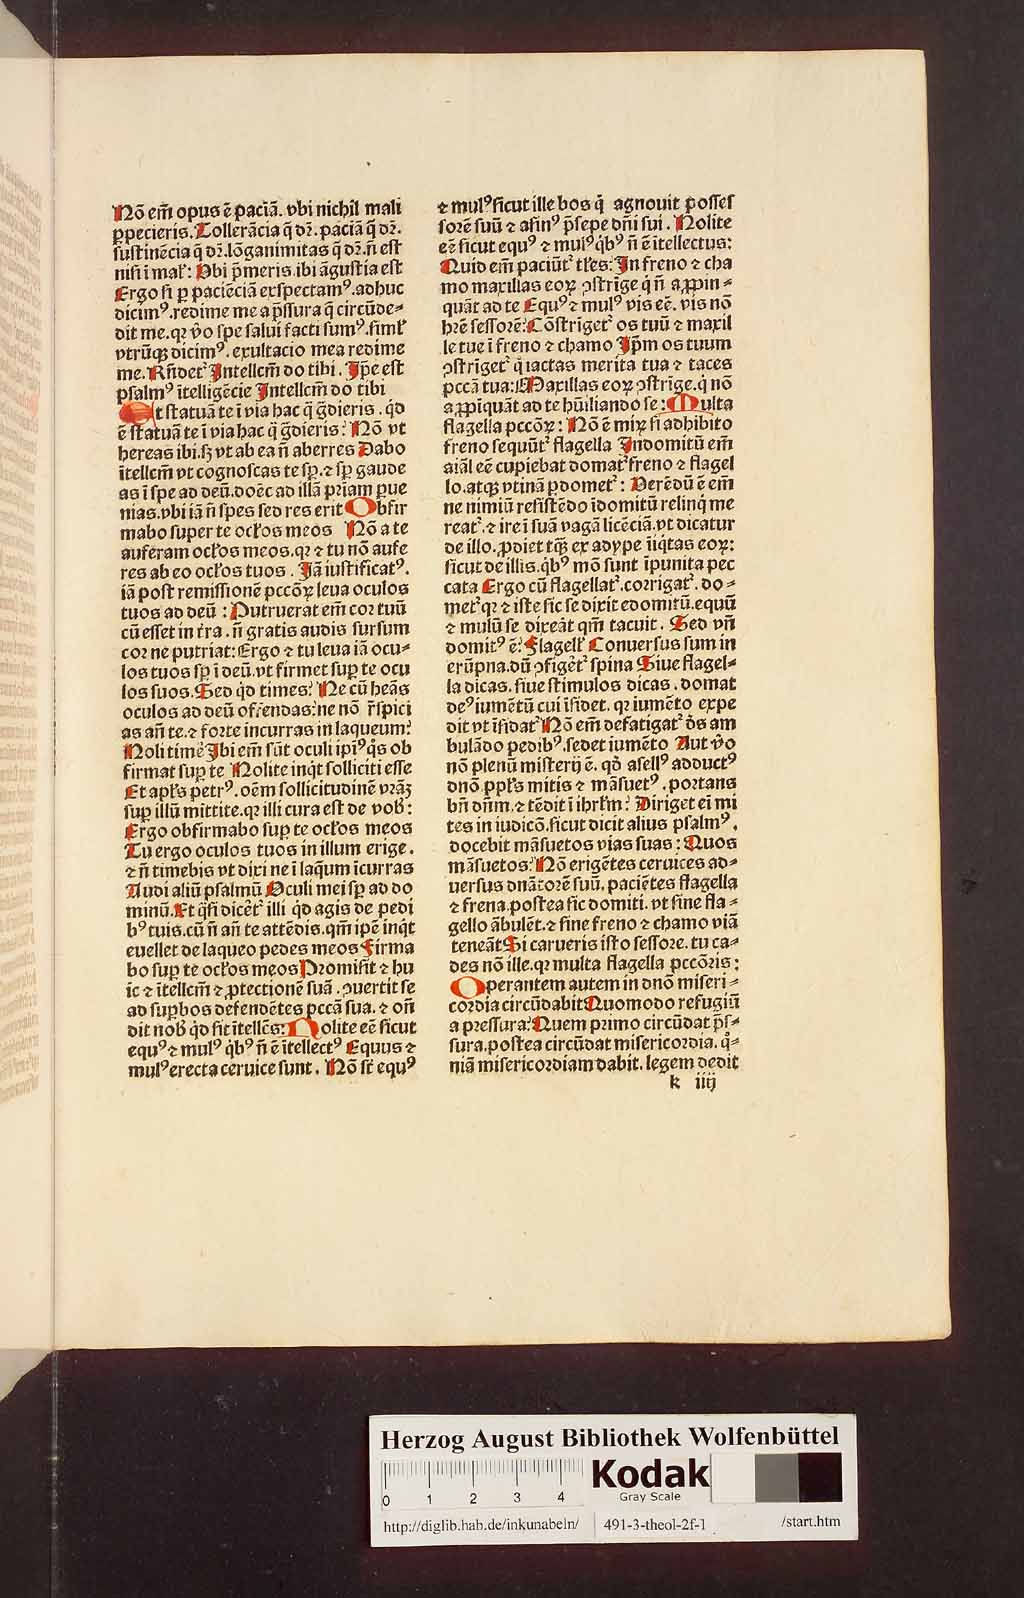 Nō em̄ opus ē paciā. vbi nichil mali
ꝑpecieris. Tollerācia q̄ dr̄. paciā q̄ dr̄.
sustinēcia q̄ dr̄. lōganimitas q̄ dr̄. n̄ est
nisi ī mal': Vbi p̄meris. ibi āgustia est
Ergo si ꝑ paciēciā exspectamꝰ. adhuc
dicimꝰ. redime me a p̄ssura q̄ circūde⸗
dit me. qr v̄o spe salui facti sumꝰ. simł
vtrūqꝫ dicimꝰ. exultacio mea redime
me. Rn̄detˀ Intellcm̄ do tibi. Ip̄e est
psalmꝰ ītelligēcie Intellcm̄ do tibi
Et statuā te ī via hac q̄ ḡdieris. qd̄
ē statuā te ī via hac q̄ ḡdieris: Nō vt
hereas ibi. sꝫ vt ab ea n̄ aberres Dabo
ītellcm̄ vt cognoscas te sꝑ. ⁊ sꝑ gaude
as ī spe ad deū. doēc ad illā priam ꝑue
nias. vbi iā n̄ spes sed res erit Obfir
mabo super te ocłos meos Nō a te
auferam ocłos meos. qr ⁊ tu nō aufe
res ab eo ocłos tuos. Iā iustificatꝰ.
iā post remissionē pccōꝝ leua oculos
tuos ad deū: Putruerat em̄ cor tuū
cū esset in t̄ra. n̄ gratis audis sursum
cor ne putriat: Ergo ⁊ tu leua iā ocu⸗
los tuos sꝑ ī deū. vt firmet suꝑ te ocu
los suos. Sed qd̄ times: Ne cū heās
oculos ad deū offendas: ne nō r̄spici
as an̄ te. ⁊ forte incurras in laqueum:
Noli timē Ibi em̄ sūt oculi ipīꝰ q̄s ob
firmat suꝑ te Nolite inq̇t solliciti esse
Et apłs petrꝰ. oēm sollicitudinē vr̄aꝫ
suꝑ illū mittite. qr illi cura est de vob̄:
Ergo obfirmabo suꝑ te ocłos meos
Tu ergo oculos tuos in illum erige.
⁊ n̄ timebis vt dixi ne ī laq̄um īcurras
Audi aliū psalmū Oculi mei sꝑ ad do
minū. Et q̄si dicētˀ illi qd̄ agis de pedi
bꝰ tuis. cū n̄ an̄ te attēdis. qm̄ ipē inq̇t
euellet de laqueo pedes meos Firma
bo suꝑ te ocłos meos Promisit ⁊ hu
ic ⁊ ītellcm̄ ⁊ ꝓtectionē suā. ꝯuertit se
ad suꝑbos defendētes pccā sua. ⁊ on̄
dit nob̄ qd̄ sit ītellc̄s: Nolite eē sicut
equꝰ ⁊ mulꝰ q̇bꝰ n̄ ē ītellectꝰ Equus ⁊
mulꝰ erecta ceruice sunt. Nō st̄ equꝰ
⁊ mulꝰ sicut ille bos q̇ agnouit posses
sorē suū ⁊ asinꝰ p̄sepe dn̄i sui. Nolite
eē sicut equꝰ ⁊ mulꝰ q̇bꝰ n̄ ē ītellectus:
Quid em̄ paciūtˀ tłes: In freno ⁊ cha
mo maxillas eoꝝ ꝯstrīge q̇ n̄ aꝓpin⸗
quāt ad te Equꝰ ⁊ mulꝰ vis eē. vis nō
hr̄e sessorē: Cōstrigetˀ os tuū ⁊ maxil
le tue ī freno ⁊ chamo Ip̄m os tuum
ꝯstrīgetˀ q̇ iactas merita tua ⁊ taces
pccā tua: Maxillas eoꝝ ꝯstrīge. q̇ nō
aꝓpīquāt ad te hūiliando se: Multa
flagella pccōꝝ: Nō ē miꝝ si adhibito
freno sequūtˀ flagella Indomitū em̄
aiāl eē cupiebat domatˀ freno ⁊ flagel
lo. atqꝫ vtinā ꝑdometˀ: Verēdū ē em̄
ne nimiū resistēdo īdomitū relinq̇ me
reatˀ. ⁊ ire ī suā vagā licēciā. vt dicatur
de illo. ꝓdiet tq̄ꝫ ex adype īiq̇tas eoꝝ:
sicut de illis. q̇bꝰ mō sunt īpunita pec
cata Ergo cū flagellatˀ. corrigatˀ. do⸗
metˀ qr ⁊ iste sic se dixit edomitū. equū
⁊ mulū se dixeāt qm̄ tacuit. Sed vn̄
domitꝰ ē: Flagell' Conuersus sum in
erūpna. dū ꝯfigētˀ spina Siue flagel⸗
la dicas. siue stimulos dicas. domat
deꝰ iumētū cui īsidet. qr iumēto expe
dit vt īsidatˀ Nō em̄ defatigatˀ dꝰs am
bulādo pedibꝰ. sedet iumēto Aut v̄o
nō plenū misterij ē. qd̄ asellꝰ adductꝰ
dnō. ppłs mitis ⁊ māsuetꝰ. portans
bn̄ dn̄m. ⁊ tēdit ī ihrłm: Diriget eī mi
tes in iudicō. sicut dicit alius psalmꝰ.
docebit māsuetos vias suas: Quos
māsuetos: Nō erigētes ceruices ad⸗
uersus dnātorē suū. paciētes flagella
⁊ frena. postea sic domiti. vt sine fla⸗
gello ābulēt. ⁊ sine freno ⁊ chamo viā
teneāt Si carueris isto sessore. tu ca⸗
des nō ille. qr multa flagella pccōris:
Operantem autem in dnō miseri⸗
cordia circūdabit Quomodo refugiū
a pressura: Quem primo circūdat p̄s⸗
sura. postea circūdat misericordia. q̄⸗
niā misericordiam dabit. legem dedit
k iiij
Herzog August Bibliothek Wolfenbüttel
0 1 2 3 4
Kodak
Gray Scale
http://diglib.hab.de/inkunabeln/ 491-3-theol-2f-1 /start.htm